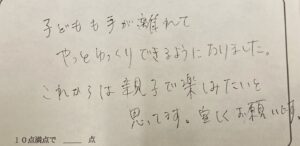 子どもも手が離れて
やっとゆっくりできるようになりました。
これからは親子で楽しみたいを
思ってます。宜しくお願いします。
10点満点で ____ 点